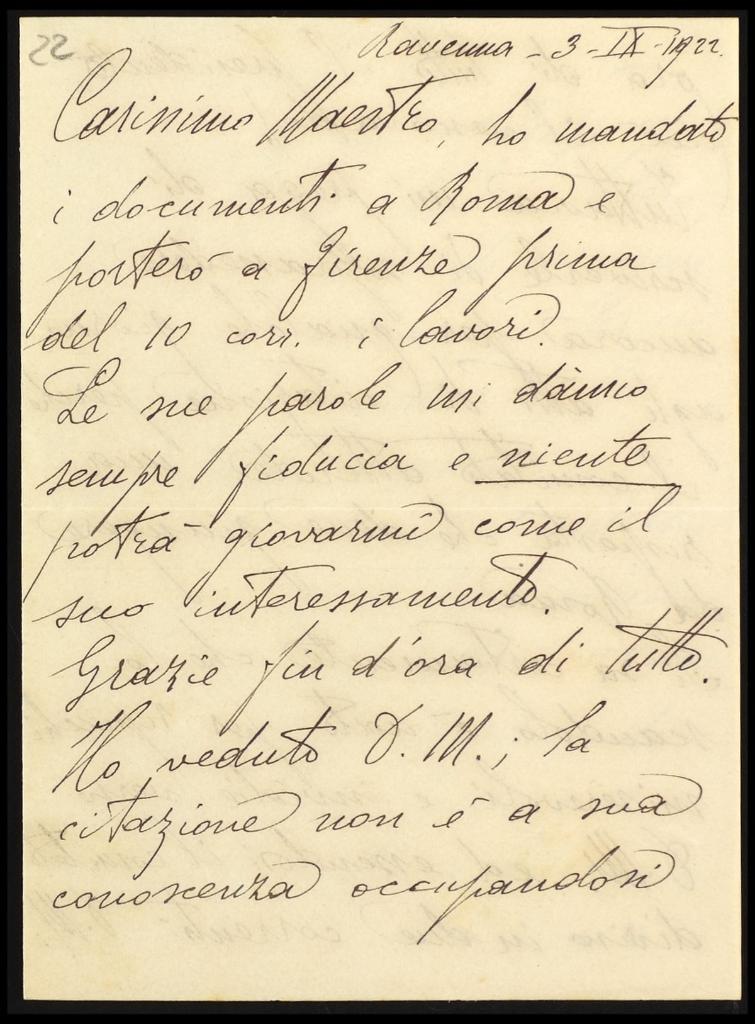 22
Ravenna - 3 - IX - 1922.
Carissimo Maestro, ho mandato
i documenti a Roma e
porterò a Firenze prima
del 10 corr. i lavori.
Le sue parole mi dànno
sempre fiducia e niente
potrà giovarmi come il
suo interessamento.
Grazie fin d'ora di tutto.
Ho veduto D. M.; la
citazione non è a sua
conoscenza occupandosi